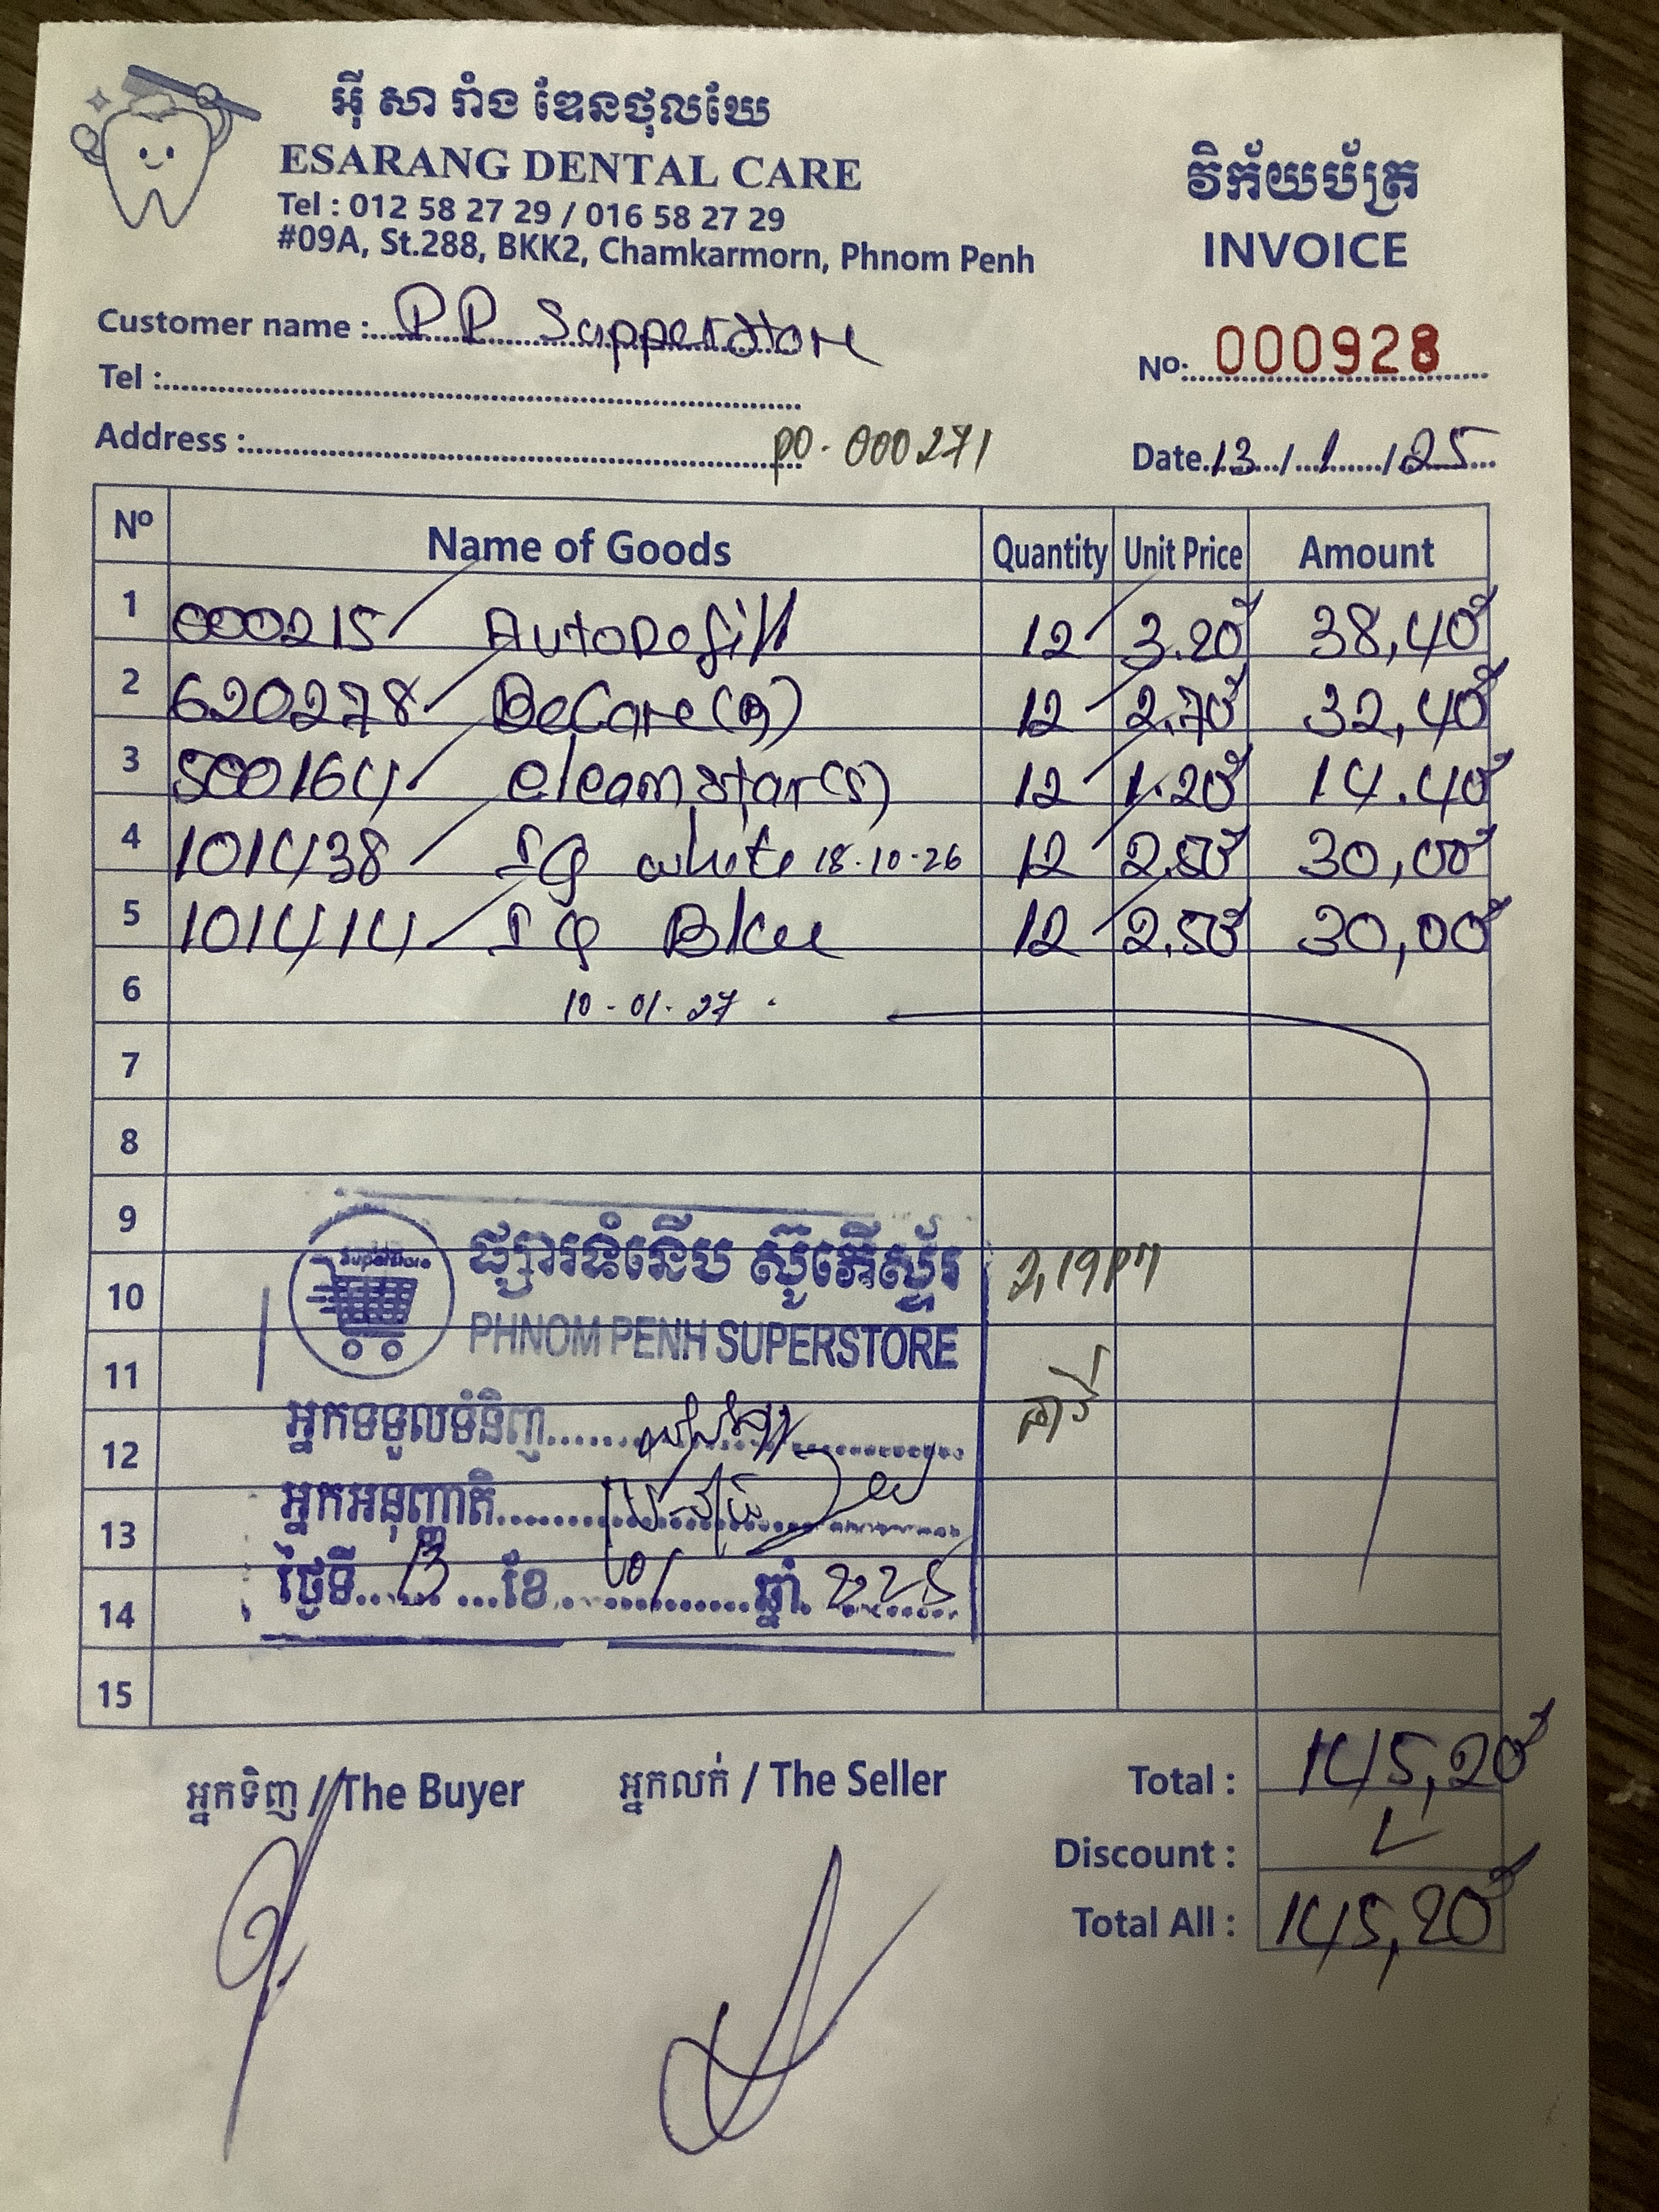 អ៊ី សា រ៉ាំង ឌែនថុលឃែ
ESARANG DENTAL CARE
Tel : 012 58 27 29 / 016 58 27 29
#09A, St.288, BKK2, Chamkarmorn, Phnom Penh
វិក័យប័ត្រ
INVOICE
Customer name : P.P Supperstore
Nº: 000928
Tel :
Address : PO. 000271
Date 13/1/25
Nº Name of Goods Quantity Unit Price Amount
1 000215 12 3.20$ 38,40$
2 620278 BeCare (B) 12 2.70$ 32,40$
3 500164 cleanstar(s) 12 1.20$ 14.40$
4 101438 IQ white 18.10.26 12 2.50$ 30,00$
5 101414 IQ Blue 12 2.50$ 30,00$
6 10-01-27
7
8
9
10
11
12
13
14
15
Superstore
ផ្សារទំនើប ស៊ូភើស្ទ័រ
PHNOM PENH SUPERSTORE
2,19PM
អ្នកទទួលទំនិញ
អ្នកអនុញ្ញាតិ
ថ្ងៃទី 13 ខែ 01 ឆ្នាំ 2025
អ្នកទិញ / The Buyer
អ្នកលក់ / The Seller
Total : 145,20$
Discount :
Total All : 145,20$